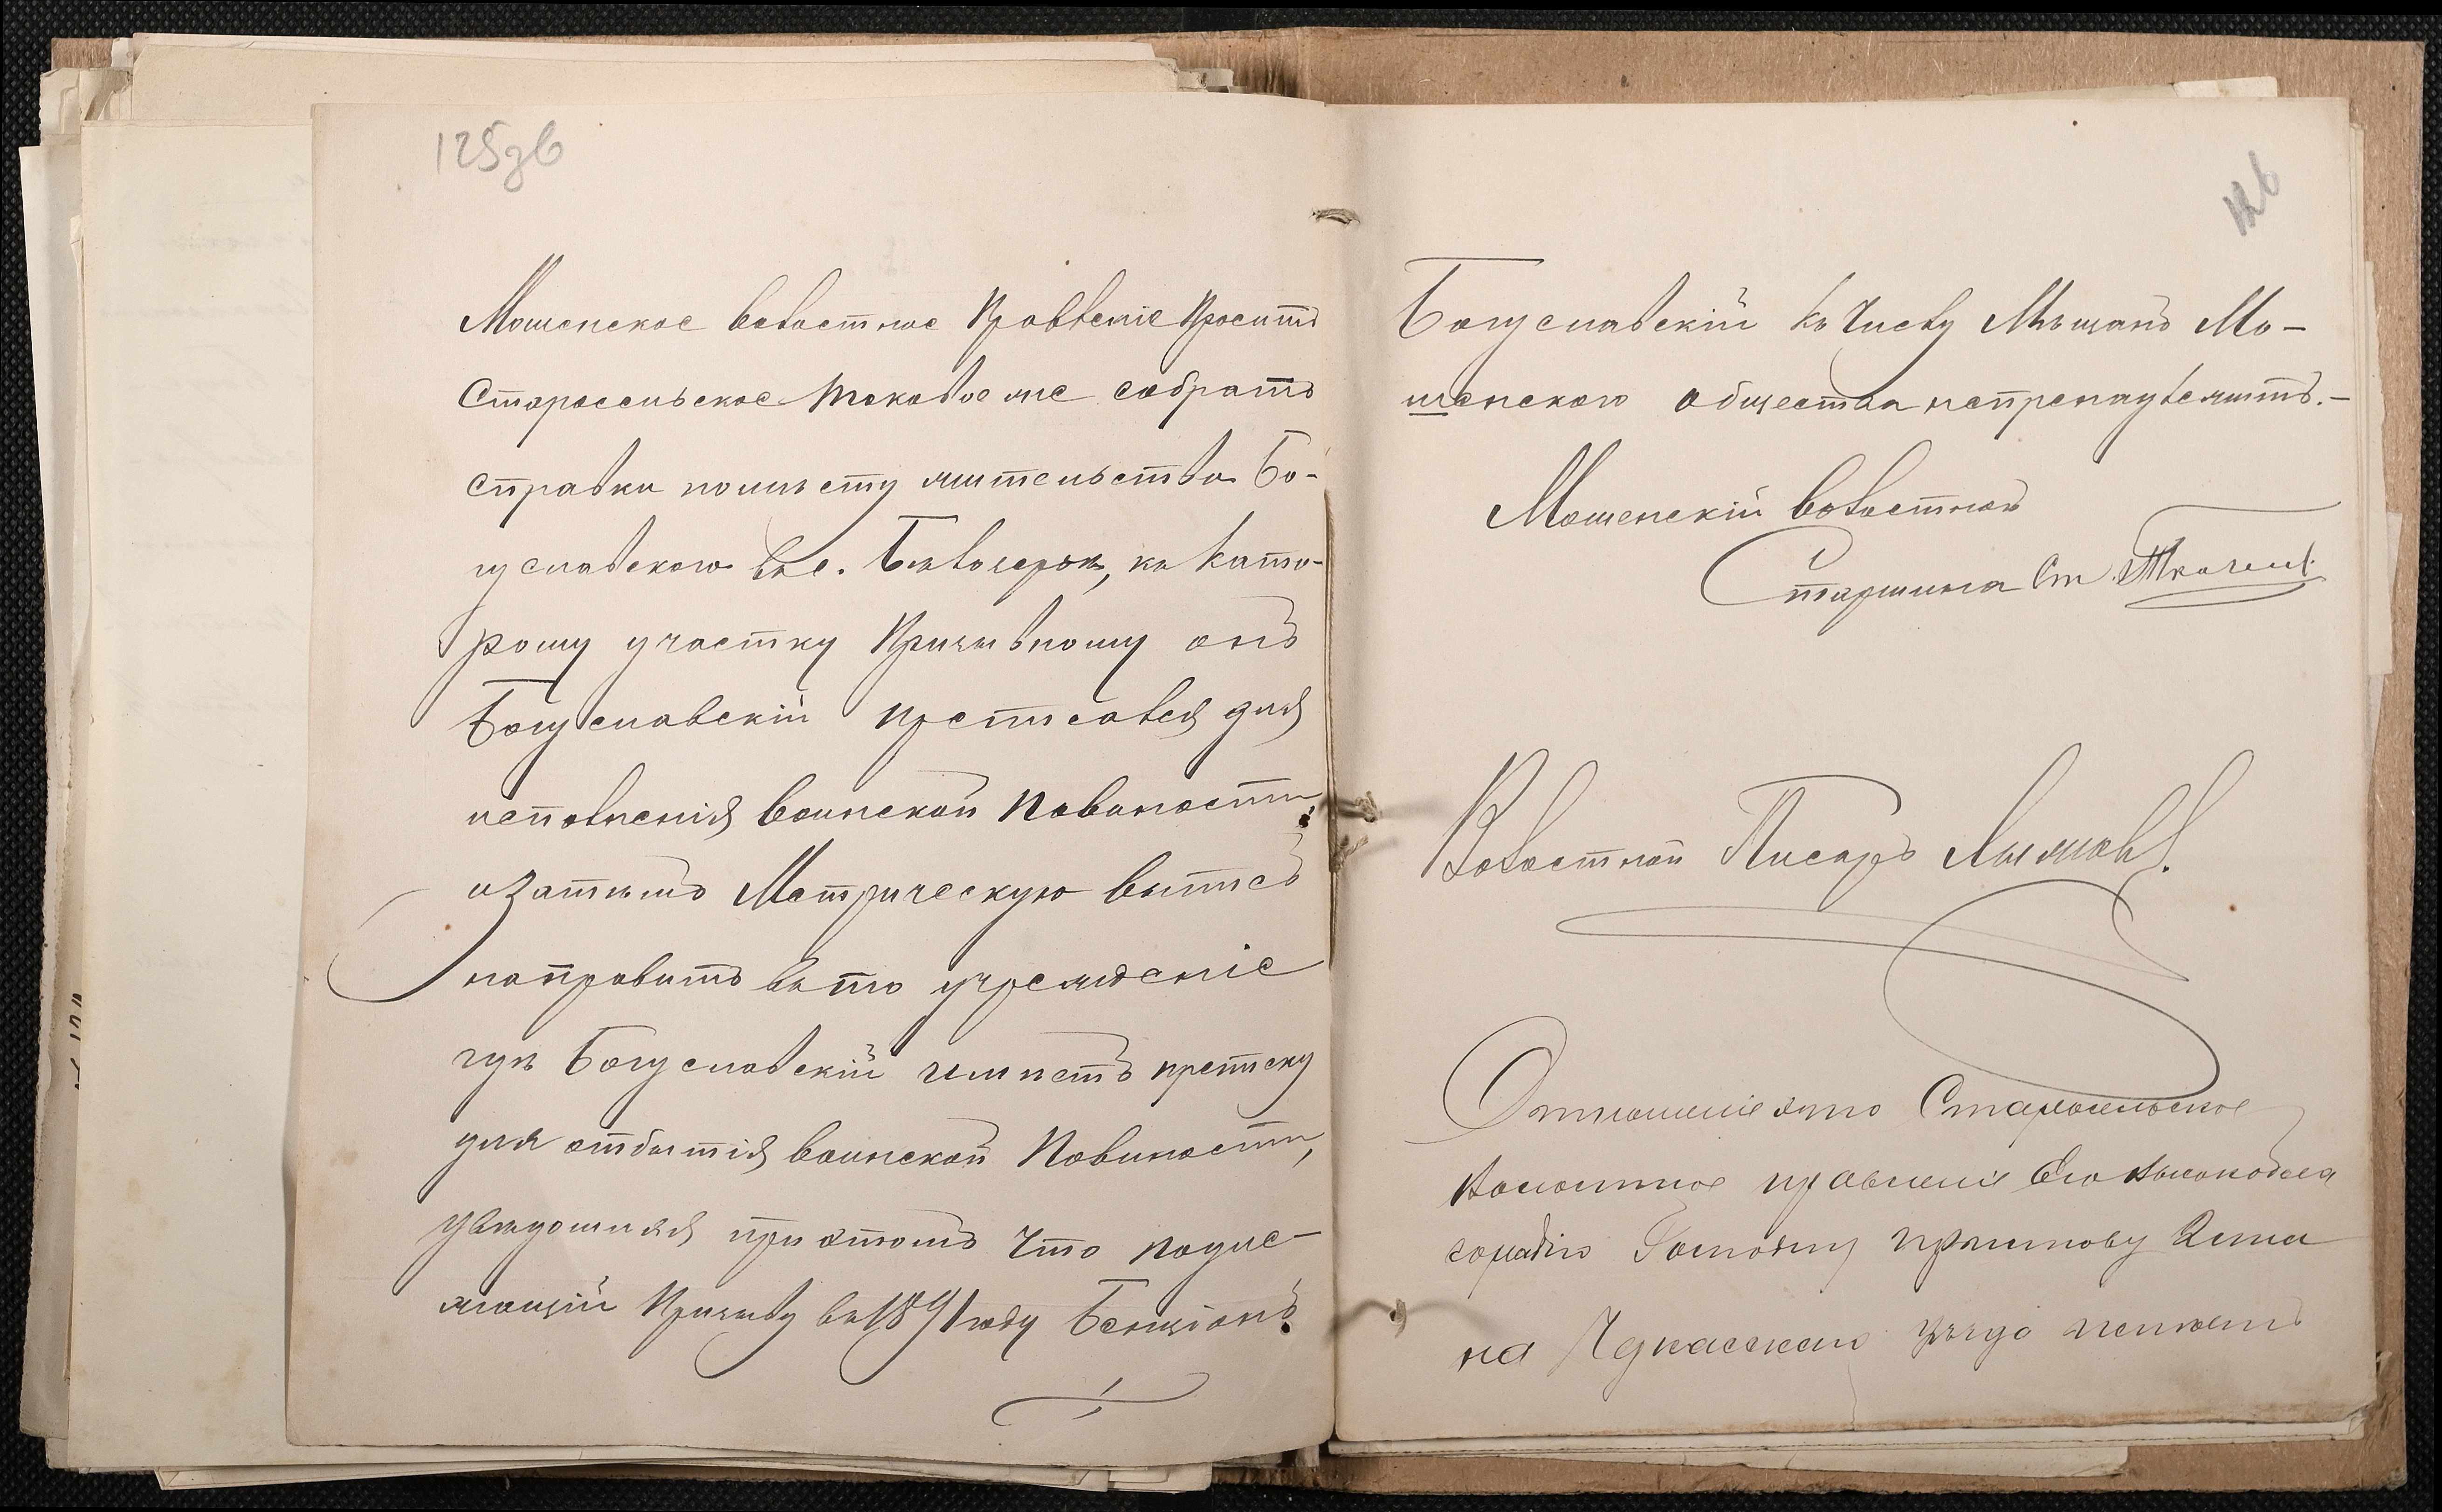 125зв
Мошенское волостное Правленіе Проситъ
Старосельское таковое же собрать
справки помѣсту жительства Бо-
гуславского въ с. Бѣлозерьи, къ кото-
рому участку Призывному онъ
Богуславскій преписался для
исполненія воинской Повиности
изатѣмъ Метрическую выпись
направить въ то учреждение
гдѣ Богуславскій имѣетъ преписку
для отбытія воинской Повиности,
увѣдомляя при этомъ Что подле-
жащій Призыву въ 1891 году Бенціонъ
126
Богуславскій къ Числу Мѣщанъ Мо-
шенского общества непренадлежитъ.-
Мошенскій волостной
Старшина Ст. Ткачен
Волостной Писарь
Отношеніе это Старосельское
Волостное правленіе Его Высокобла
городію Господину приставу 2 ста
на Черкасскаго уѣзда